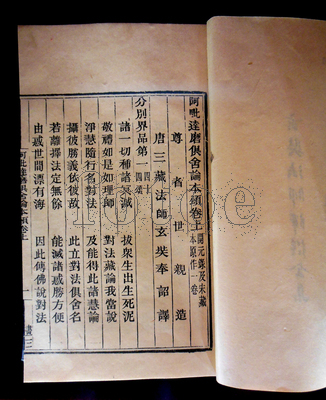 阿毗達磨俱舍論本頌卷上 開元錄及宋藏本原作一卷
尊者世親造
唐三藏法師玄奘奉詔譯
分別界品第一 四十四頌
諸一切種諸冥滅 拔眾生出生死泥
敬禮如是如理師 對法藏論我當說
淨慧隨行名對法 及能得此諸慧論
攝彼勝義依彼故 此立對法俱舍名
若離擇法定無餘 能滅諸惑勝方便
由惑世間漂有海 因此傳佛說對法
阿毗達磨俱舍論本頌卷上 一 畫三